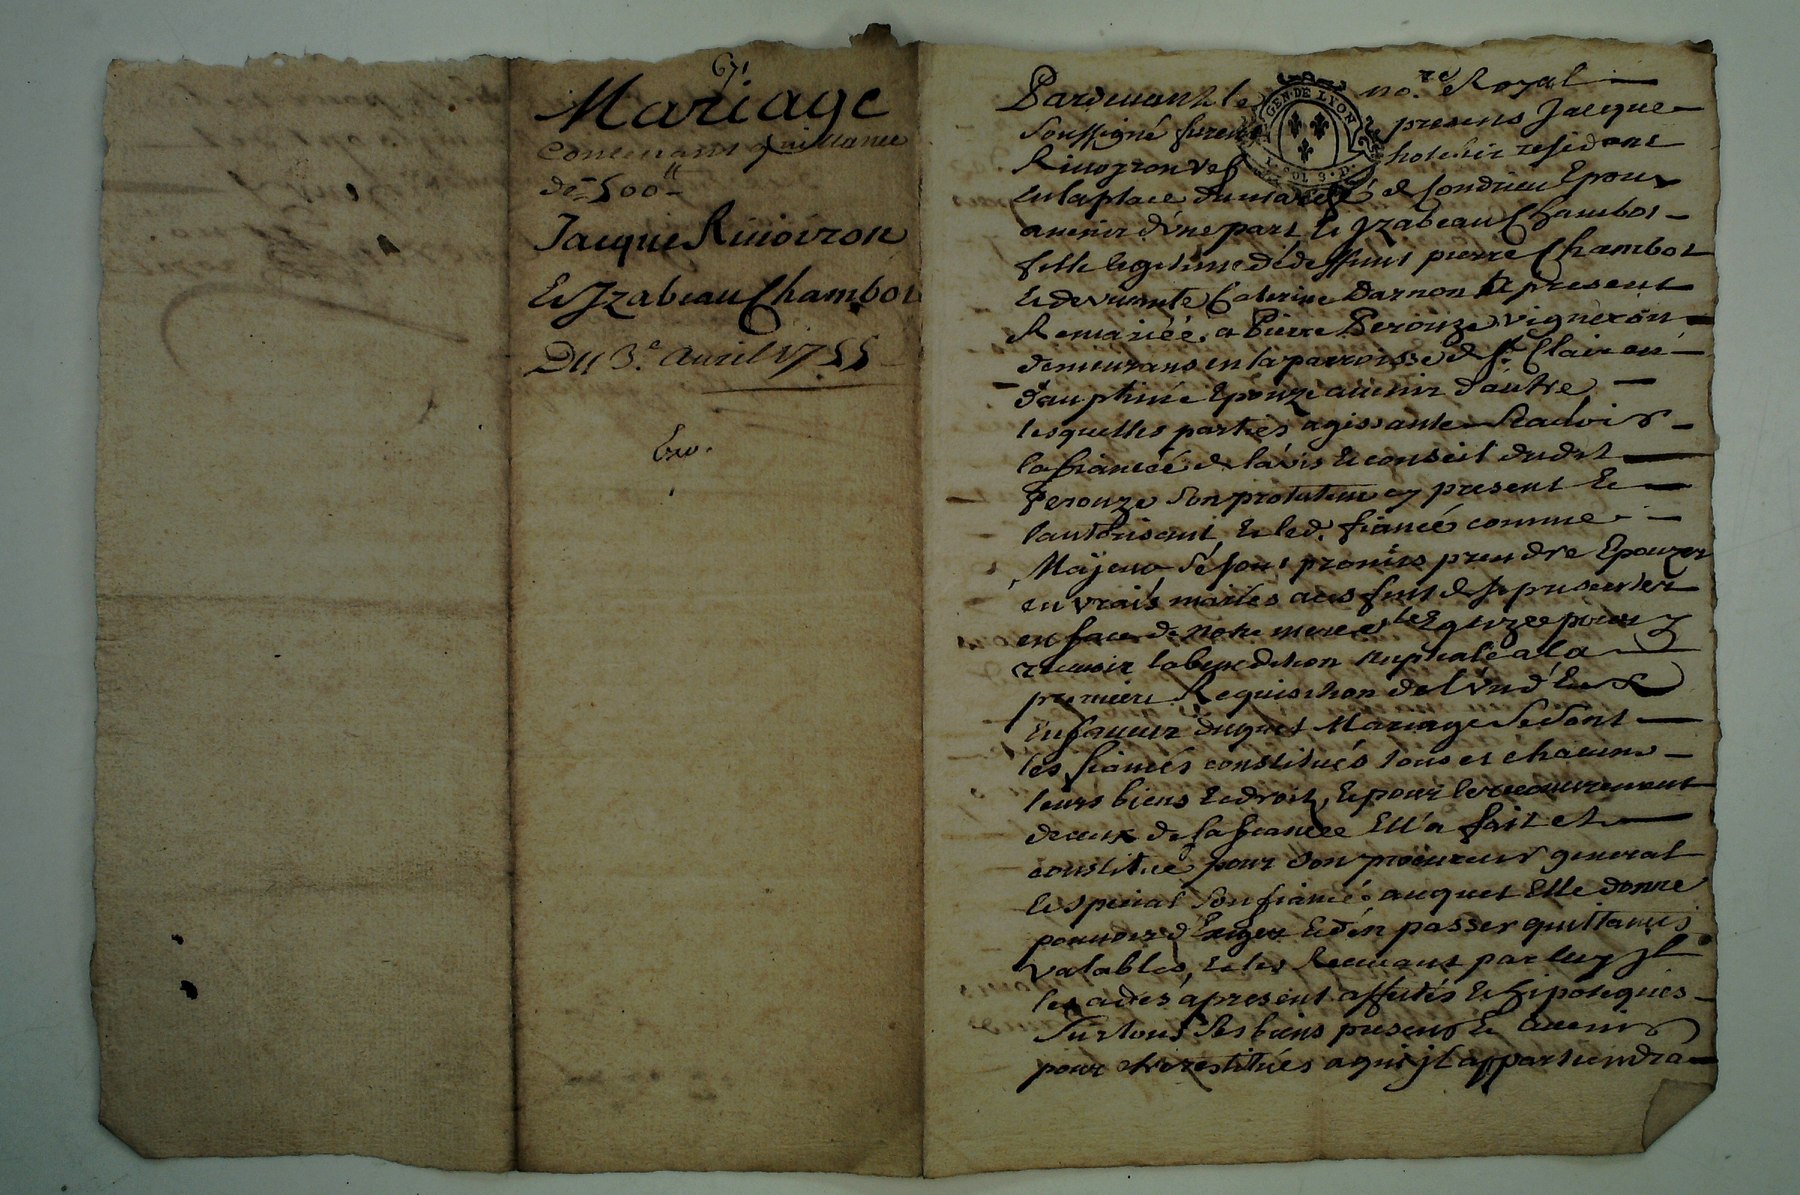 671
Mariage
Contenant quittance
de 500ᵗᵗ
Jacque Rivoiron
Et Izabeau Chambot
Du 3.ᵉ avril 1755
Pardevant le noʳᵉ Royal
GEN. DE LYON
Soussigné furent presens Jacque
Rivoyron hotelier residant
en la place du marché de Condrieu Epoux
avenir d'une part Et Izabeau Chambot
fille legitime de deffunt pierre Chambot
Et de vivante Caterine Darnon a present
Remariée a Pierre Perouze vigneron
demeurans en la parroisse de Sᵗ Clair en
dauphiné Epouze avenir d'autre
lesquelles parties agissantes scavoir
la fiancée de l'avis Et conseil dudit
Perouze son protuteur cy present Et
l'authorisant Et led. fiancé comme
Majeur se sont promis prendre Epouzer
en vrais mariés a ces fins de se presenter
en face de notre mere Sᵗᵉ Eglize pour y
recevoir la benediction nuptiale a la
premiere Requisition de l'un d'Eux
En faveur duquel Mariage se sont
les fiancés constitués tous et chacuns
leurs biens Et droits, Et pour le recouvrement
de ceux de la fiancée Ell'a fait et
constitué pour son procureur general
Et special son fiancé auquel Elle donne
pouvoir d'Exiger Et d'en passer quittances
valables, Et les Recevant par luy Jl
les a des apresent affectés Et hipotequés
Sur tous ses biens presens Et avenir
pour etre restitués a qui jl appartiendra